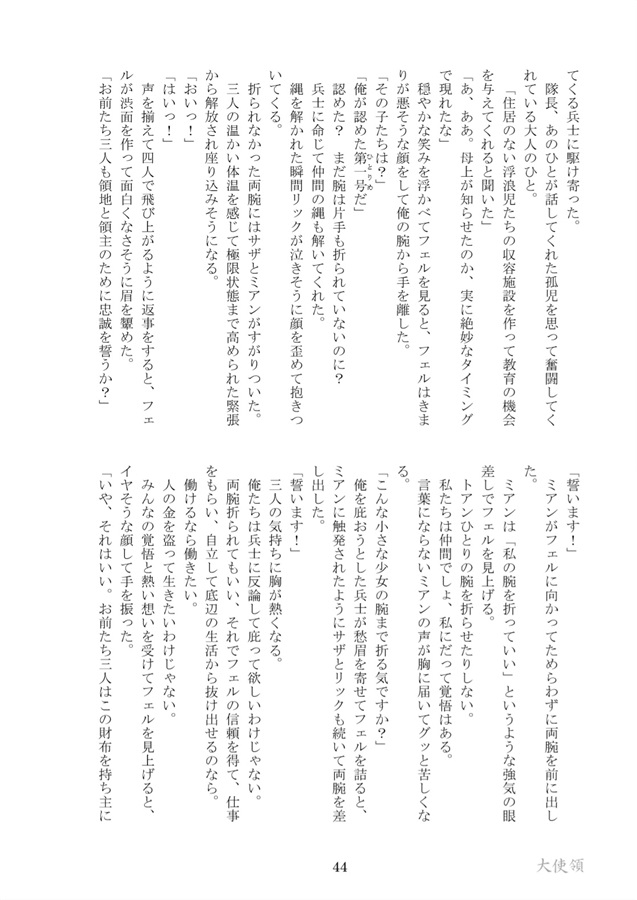 てくる兵士に駆け寄った。
　隊長、あのひとが話してくれた孤児を思って奮闘してく
れている大人のひと。
　「住居のない浮浪児たちの収容施設を作って教育の機会
を与えてくれると聞いた」
「あ、ああ。母上が知らせたのか、実に絶妙なタイミング
で現れたな」
　穏やかな笑みを浮かべてフェルを見ると、フェルはきま
りが悪そうな顔をして俺の腕から手を離した。
「その子たちは？」
「俺が認めた第一号だ」
ひとりめ
　認めた？　まだ腕は片手も折られていないのに？
　兵士に命じて仲間の縄も解いてくれた。
　縄を解かれた瞬間リックが泣きそうに顔を歪めて抱きつ
いてくる。
　折られなかった両腕にはサザとミアンがすがりついた。
　三人の温かい体温を感じて極限状態まで高められた緊張
から解放され座り込みそうになる。
「おいっ！」
「はいっ！」
　声を揃えて四人で飛び上がるように返事をすると、フェ
ルが渋面を作って面白くなさそうに眉を顰めた。
「お前たち三人も領地と領主のために忠誠を誓うか？」
「誓います！」
　ミアンがフェルに向かってためらわずに両腕を前に出し
た。
　ミアンは「私の腕を折っていい」というような強気の眼
差しでフェルを見上げる。
　トアンひとりの腕を折らせたりしない。
　私たちは仲間でしょ、私にだって覚悟はある。
　言葉にならないミアンの声が胸に届いてグッと苦しくな
る。
「こんな小さな少女の腕まで折る気ですか？」
　俺を庇おうとした兵士が愁眉を寄せてフェルを詰ると、
ミアンに触発されたようにサザとリックも続いて両腕を差
し出した。
「誓います！」
　三人の気持ちに胸が熱くなる。
　俺たちは兵士に反論して庇って欲しいわけじゃない。
　両腕折られてもいい、それでフェルの信頼を得て、仕事
をもらい、自立して底辺の生活から抜け出せるのなら。
　働けるなら働きたい。
　人の金を盗って生きたいわけじゃない。
　みんなの覚悟と熱い想いを受けてフェルを見上げると、
イヤそうな顔して手を振った。
「いや、それはいい。お前たち三人はこの財布を持ち主に
44
大使領